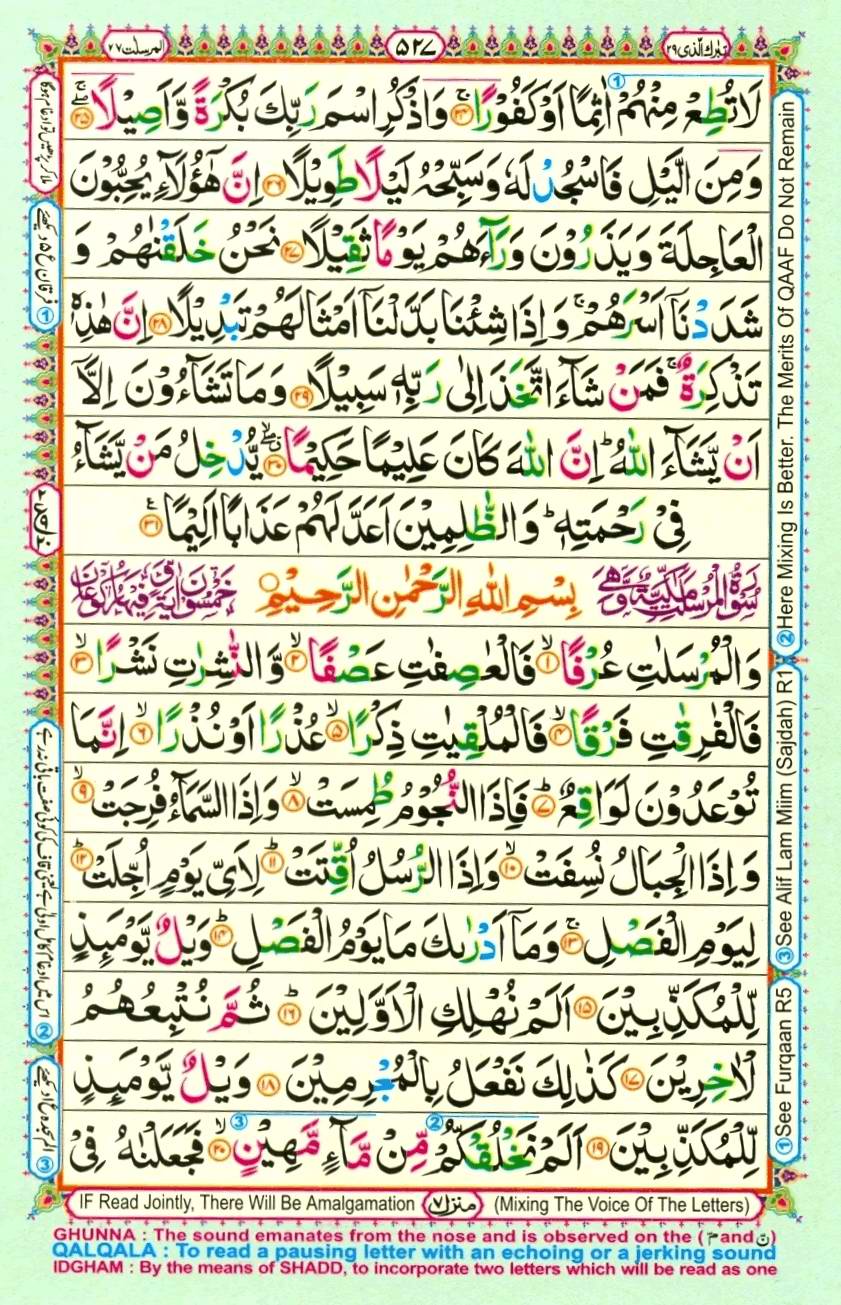 تبٰرك الّذى ٢٩
٥٢٧
المرسلت ٧٧
لَا تُطِعْ مِنْهُمْ اٰثِمًا اَوْ كَفُوْرًا ۚ ﴿۲۴﴾ وَاذْكُرِ اسْمَ رَبِّكَ بُكْرَةً وَّاَصِيْلًا ۖۚ ﴿۲۵﴾
وَمِنَ الَّيْلِ فَاسْجُدْ لَهٗ وَسَبِّحْهُ لَيْلًا طَوِيْلًا ﴿۲۶﴾ اِنَّ هٰٓؤُلَآءِ يُحِبُّوْنَ
الْعَاجِلَةَ وَيَذَرُوْنَ وَرَآءَهُمْ يَوْمًا ثَقِيْلًا ﴿۲۷﴾ نَحْنُ خَلَقْنٰهُمْ وَ
شَدَدْنَاۤ اَسْرَهُمْ ۚ وَاِذَا شِئْنَا بَدَّلْنَاۤ اَمْثَالَهُمْ تَبْدِيْلًا ﴿۲۸﴾ اِنَّ هٰذِهٖ
تَذْكِرَةٌ ۚ فَمَنْ شَآءَ اتَّخَذَ اِلٰى رَبِّهٖ سَبِيْلًا ﴿۲۹﴾ وَمَا تَشَآءُوْنَ اِلَّاۤ
اَنْ يَّشَآءَ اللّٰهُ ؕ اِنَّ اللّٰهَ كَانَ عَلِيْمًا حَكِيْمًا ۖۗ ﴿۳۰﴾ يُّدْخِلُ مَنْ يَّشَآءُ
فِيْ رَحْمَتِهٖ ؕ وَالظّٰلِمِيْنَ اَعَدَّ لَهُمْ عَذَابًا اَلِيْمًا ﴿۳۱﴾
سُوْرَةُ الْمُرْسَلٰتِ مَكِّيَّةٌ وَّهِيَ بِسْمِ اللّٰهِ الرَّحْمٰنِ الرَّحِيْمِ خَمْسُوْنَ اٰيَةً وَّفِيْهَا رُكُوْعَانِ
وَالْمُرْسَلٰتِ عُرْفًا ۙ ﴿۱﴾ فَالْعٰصِفٰتِ عَصْفًا ۙ ﴿۲﴾ وَّالنّٰشِرٰتِ نَشْرًا ۙ ﴿۳﴾
فَالْفٰرِقٰتِ فَرْقًا ۙ ﴿۴﴾ فَالْمُلْقِيٰتِ ذِكْرًا ۙ ﴿۵﴾ عُذْرًا اَوْ نُذْرًا ۙ ﴿۶﴾ اِنَّمَا
تُوْعَدُوْنَ لَوَاقِعٌ ؕ ﴿۷﴾ فَاِذَا النُّجُوْمُ طُمِسَتْ ۙ ﴿۸﴾ وَاِذَا السَّمَآءُ فُرِجَتْ ۙ ﴿۹﴾
وَاِذَا الْجِبَالُ نُسِفَتْ ۙ ﴿۱۰﴾ وَاِذَا الرُّسُلُ اُقِّتَتْ ؕ ﴿۱۱﴾ لِاَيِّ يَوْمٍ اُجِّلَتْ ؕ ﴿۱۲﴾
لِيَوْمِ الْفَصْلِ ۚ ﴿۱۳﴾ وَمَاۤ اَدْرٰىكَ مَا يَوْمُ الْفَصْلِ ؕ ﴿۱۴﴾ وَيْلٌ يَّوْمَئِذٍ
لِّلْمُكَذِّبِيْنَ ﴿۱۵﴾ اَلَمْ نُهْلِكِ الْاَوَّلِيْنَ ؕ ﴿۱۶﴾ ثُمَّ نُتْبِعُهُمُ
الْاٰخِرِيْنَ ﴿۱۷﴾ كَذٰلِكَ نَفْعَلُ بِالْمُجْرِمِيْنَ ﴿۱۸﴾ وَيْلٌ يَّوْمَئِذٍ
لِّلْمُكَذِّبِيْنَ ﴿۱۹﴾ اَلَمْ نَخْلُقْكُّمْ مِّنْ مَّآءٍ مَّهِيْنٍ ۙ ﴿۲۰﴾ فَجَعَلْنٰهُ فِيْ
② Here Mixing Is Better. The Merits Of QAAF Do Not Remain
③ See Alif Lam Miiim (Sajdah) R1
① See Furqaan R5
IF Read Jointly, There Will Be Amalgamation منزل ٧ (Mixing The Voice Of The Letters)
GHUNNA : The sound emanates from the nose and is observed on the ( م and ن)
QALQALA : To read a pausing letter with an echoing or a jerking sound
IDGHAM : By the means of SHADD, to incorporate two letters which will be read as one